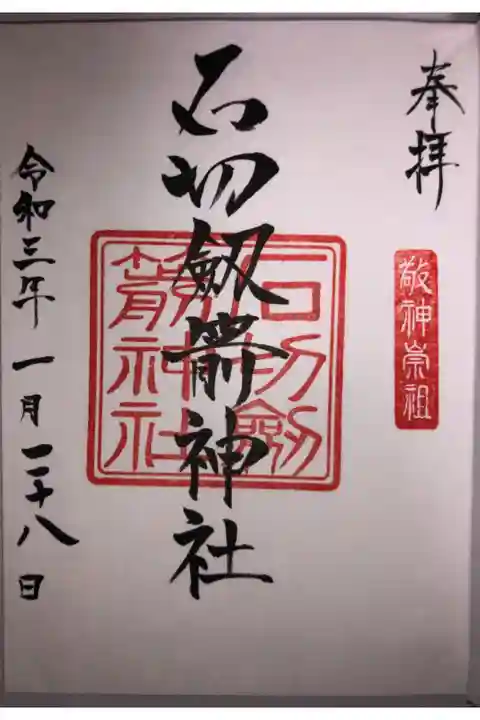 奉拝
敬神崇祖
石切劔箭神社
石切劔
箭神社
令和三年一月二十八日